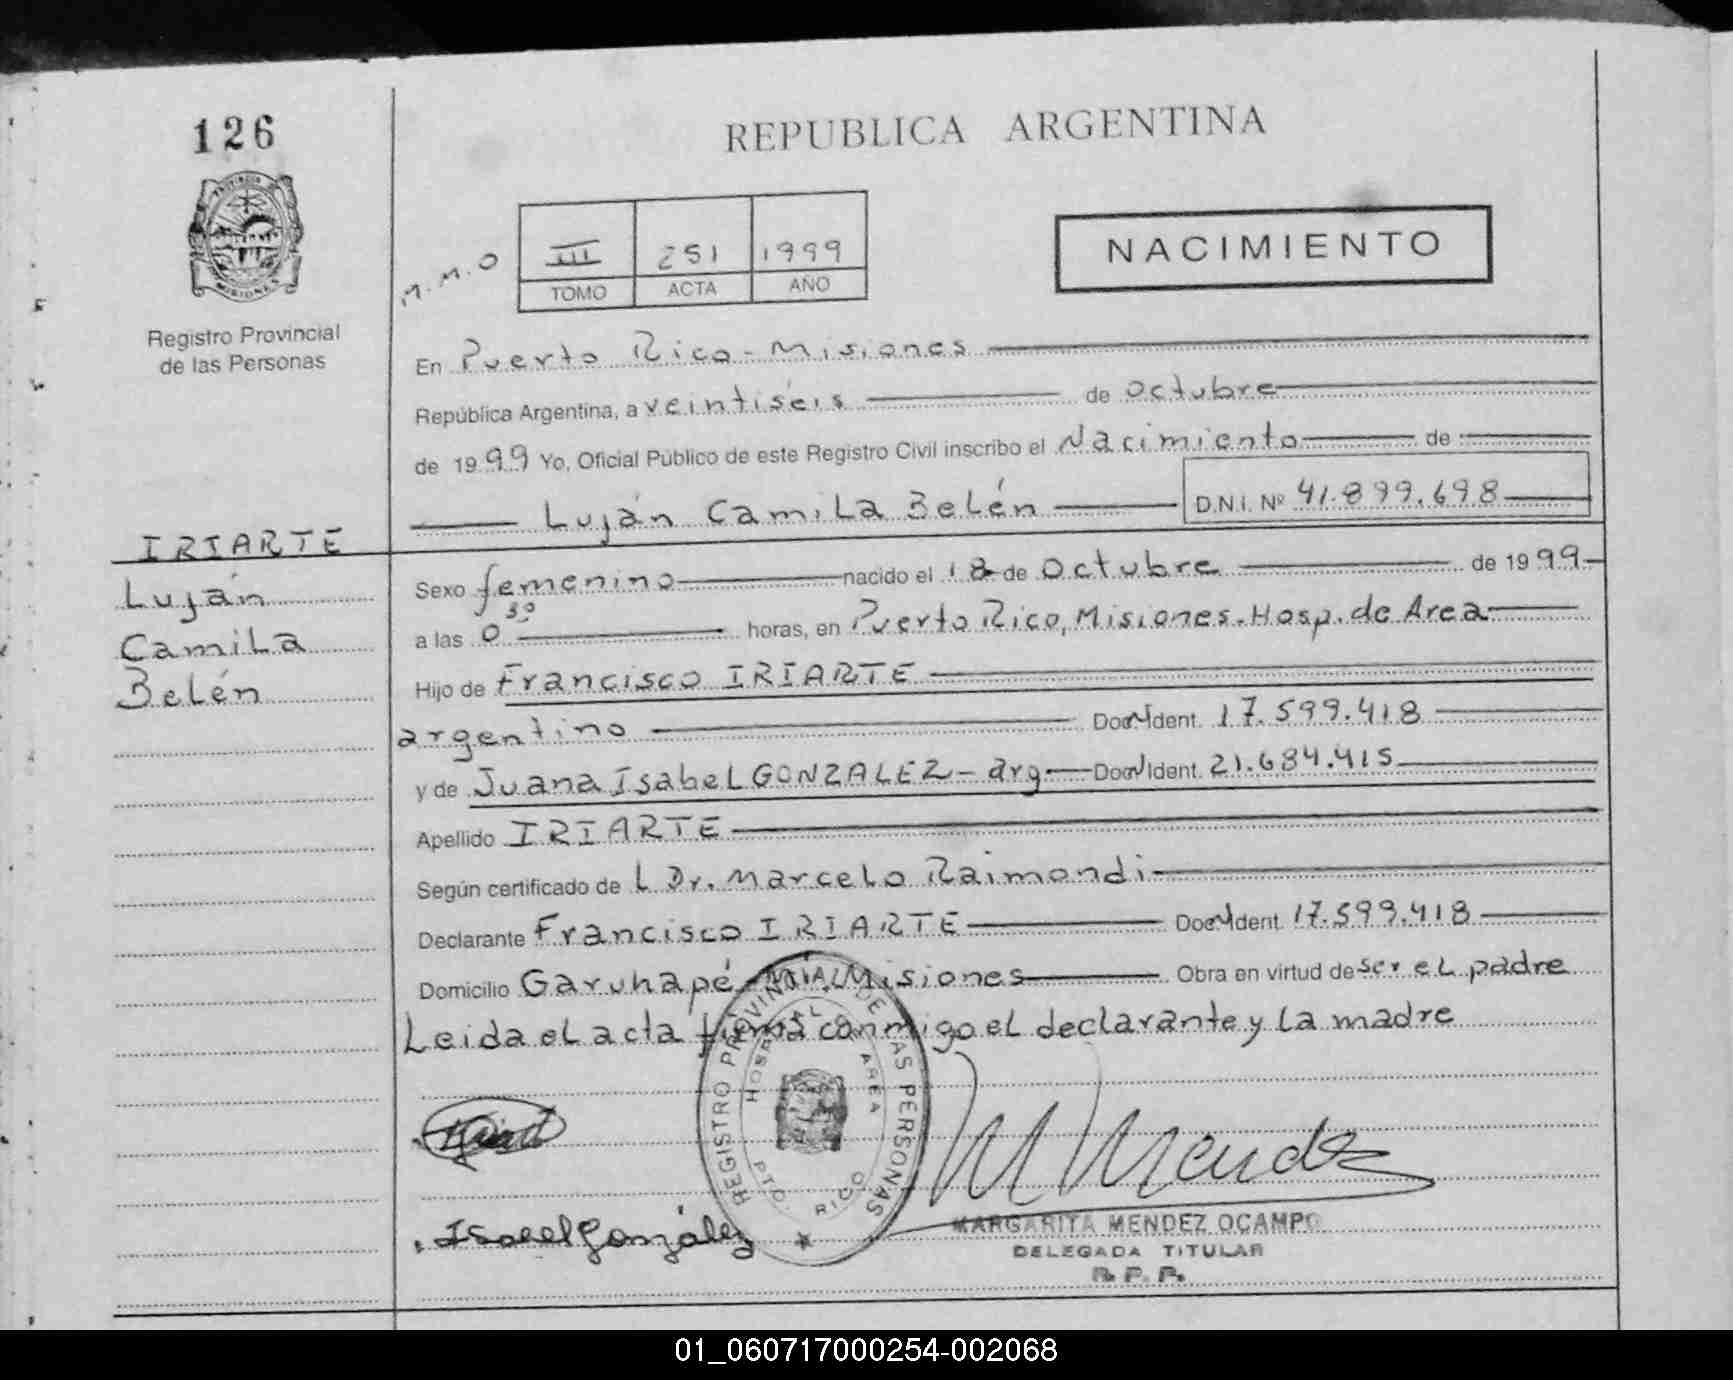 126
REPUBLICA ARGENTINA
PROVINCIA DE
MISIONES
Registro Provincial
de las Personas
M.M.O
III 251 1999
TOMO ACTA AÑO
NACIMIENTO
En Puerto Rico - Misiones
República Argentina, a veintiséis de octubre
de 1999 Yo, Oficial Público de este Registro Civil inscribo el Nacimiento de
Luján Camila Belén D.N.I. Nº 41.899.698
IRIARTE
Luján
Camila
Belén
Sexo femenino nacido el 18 de Octubre de 1999
a las 0 30 horas, en Puerto Rico, Misiones. Hosp. de Area
Hijo de Francisco IRIARTE
argentino Doc N Ident. 17.599.418
y de Juana Isabel GONZALEZ - arg Doc N Ident. 21.684.415
Apellido IRIARTE
Según certificado de L Dr. Marcelo Raimondi
Declarante Francisco IRIARTE Doc N Ident. 17.599.418
Domicilio Garuhapé - Misiones Obra en virtud de ser el padre
Leida el acta firma conmigo el declarante y la madre
REGISTRO PROVINCIAL DE LAS PERSONAS
HOSPITAL AREA
PTO. RICO
M Mendez
Isabel González
MARGARITA MENDEZ OCAMPO
DELEGADA TITULAR
R. P. P.
01_060717000254-002068